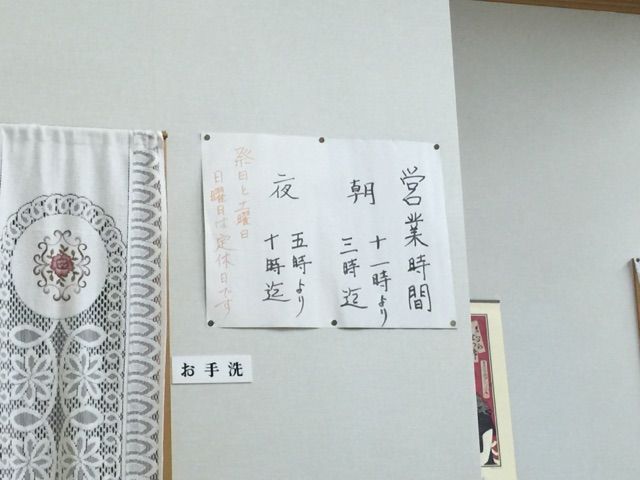 営業時間
朝
十一時より
三時迄
夜
五時より
十時迄
祭日と土曜日
日曜日は定休日です
お手洗